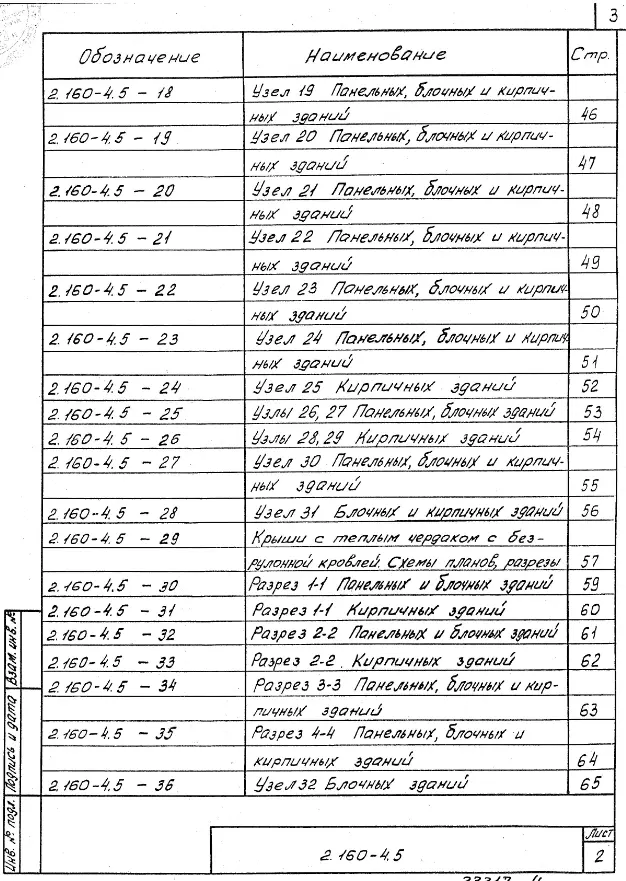 3
Обозначение Наименование Стр.
2.160-4.5 - 18 Узел 19 Панельных, блочных и кирпич-
ных зданий 46
2.160-4.5 - 19 Узел 20 Панельных, блочных и кирпич-
ных зданий 47
2.160-4.5 - 20 Узел 21 Панельных, блочных и кирпич-
ных зданий 48
2.160-4.5 - 21 Узел 22 Панельных, блочных и кирпич-
ных зданий 49
2.160-4.5 - 22 Узел 23 Панельных, блочных и кирпич-
ных зданий 50
2.160-4.5 - 23 Узел 24 Панельных, блочных и кирпич-
ных зданий 51
2.160-4.5 - 24 Узел 25 Кирпичных зданий 52
2.160-4.5 - 25 Узлы 26, 27 Панельных, блочных зданий 53
2.160-4.5 - 26 Узлы 28, 29 Кирпичных зданий 54
2.160-4.5 - 27 Узел 30 Панельных, блочных и кирпич-
ных зданий 55
2.160-4.5 - 28 Узел 31 Блочных и кирпичных зданий 56
2.160-4.5 - 29 Крыши с теплым чердаком с без-
рулонной кровлей. Схемы планов, разрезы 57
2.160-4.5 - 30 Разрез 1-1 Панельных и блочных зданий 59
2.160-4.5 - 31 Разрез 1-1 Кирпичных зданий 60
2.160-4.5 - 32 Разрез 2-2 Панельных и блочных зданий 61
2.160-4.5 - 33 Разрез 2-2. Кирпичных зданий 62
2.160-4.5 - 34 Разрез 3-3 Панельных, блочных и кир-
пичных зданий 63
2.160-4.5 - 35 Разрез 4-4 Панельных, блочных и
кирпичных зданий 64
2.160-4.5 - 36 Узел 32 Блочных зданий 65
Взам. инв. №
Подпись и дата
Инв. № подл.
2.160-4.5
Лист
2